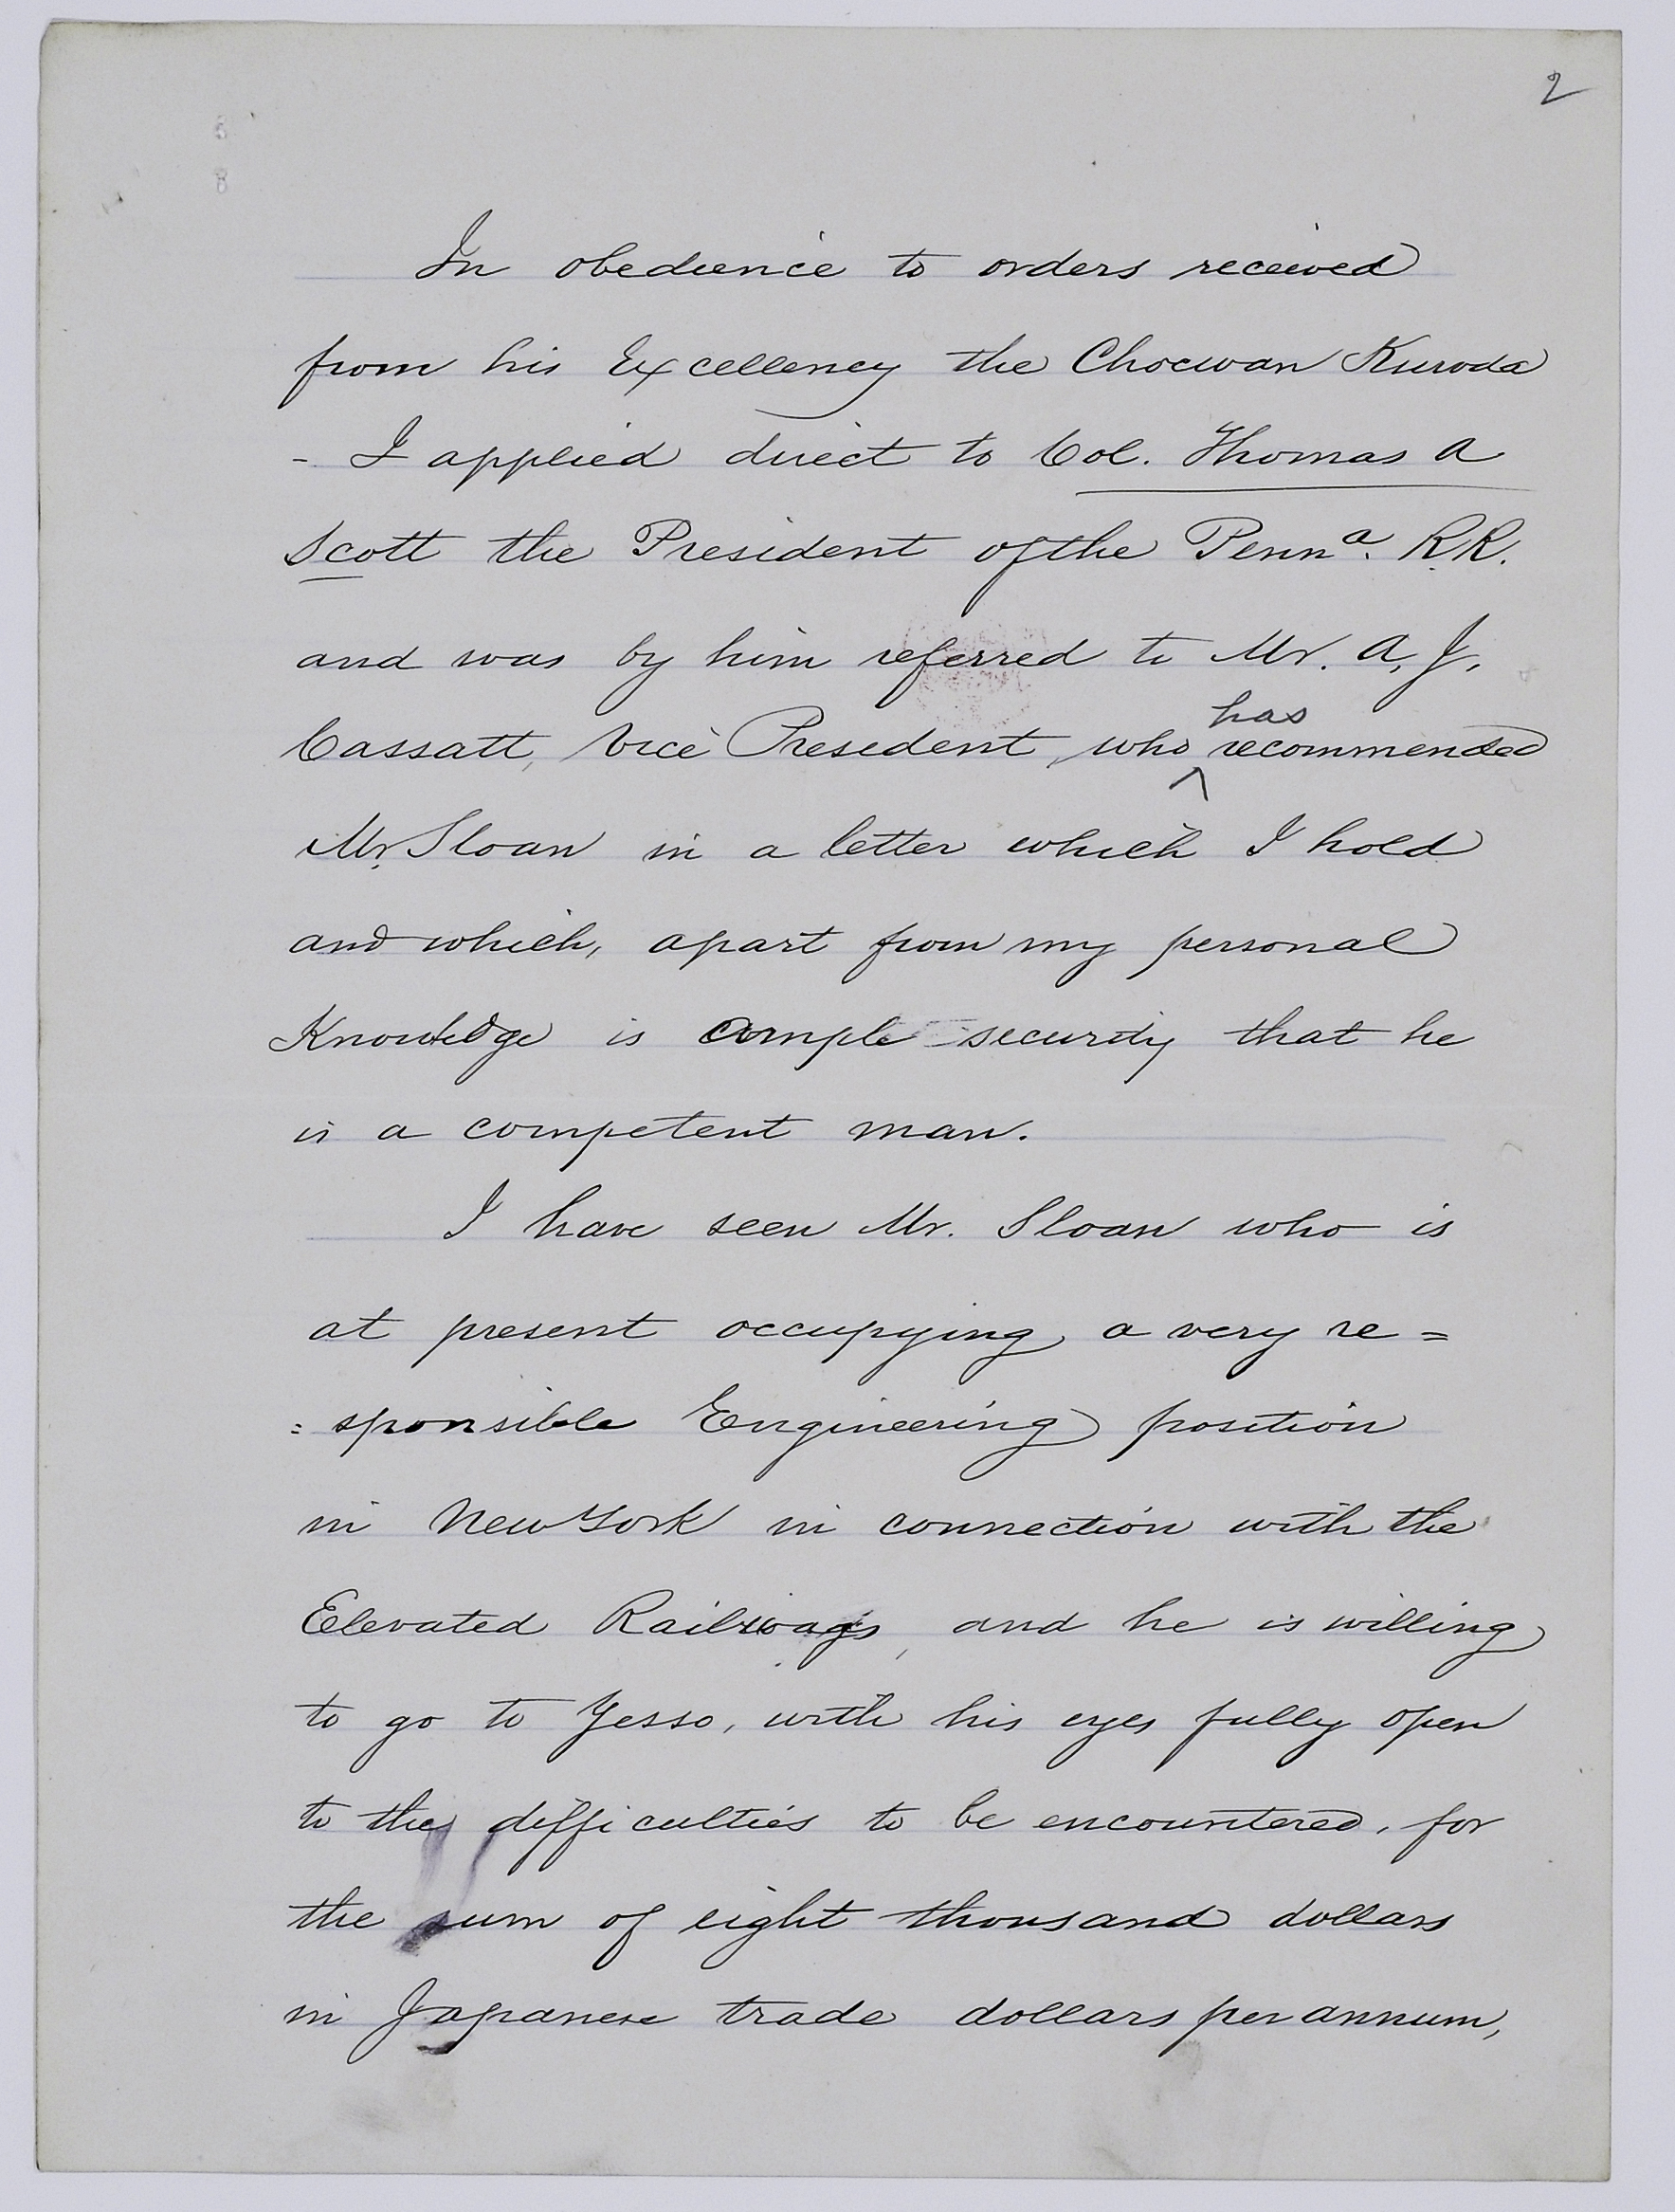 2
In obedience to orders received
from his Excellency the Chocwan Kuroda
- I applied direct to Col. Thomas A
Scott the President of the Penna. R.R.
and was by him referred to Mr. A. J.
has
Cassatt, Vice President, who ^ recommended
Mr. Sloan in a letter which I hold
and which, apart from my personal
Knowledge is ample security that he
is a competent man.
I have seen Mr. Sloan who is
at present occupying a very re=
=sponsible Engineering position
in New York in connection with the
Elevated Railways, and he is willing
to go to Yesso, with his eyes fully open
to the difficulties to be encountered, for
the sum of eight thousand dollars
in Japanese trade dollars per annum,